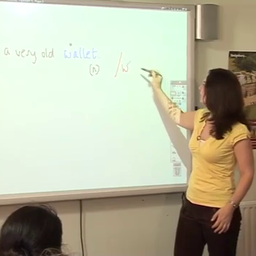 a very old wallet
(n) /w